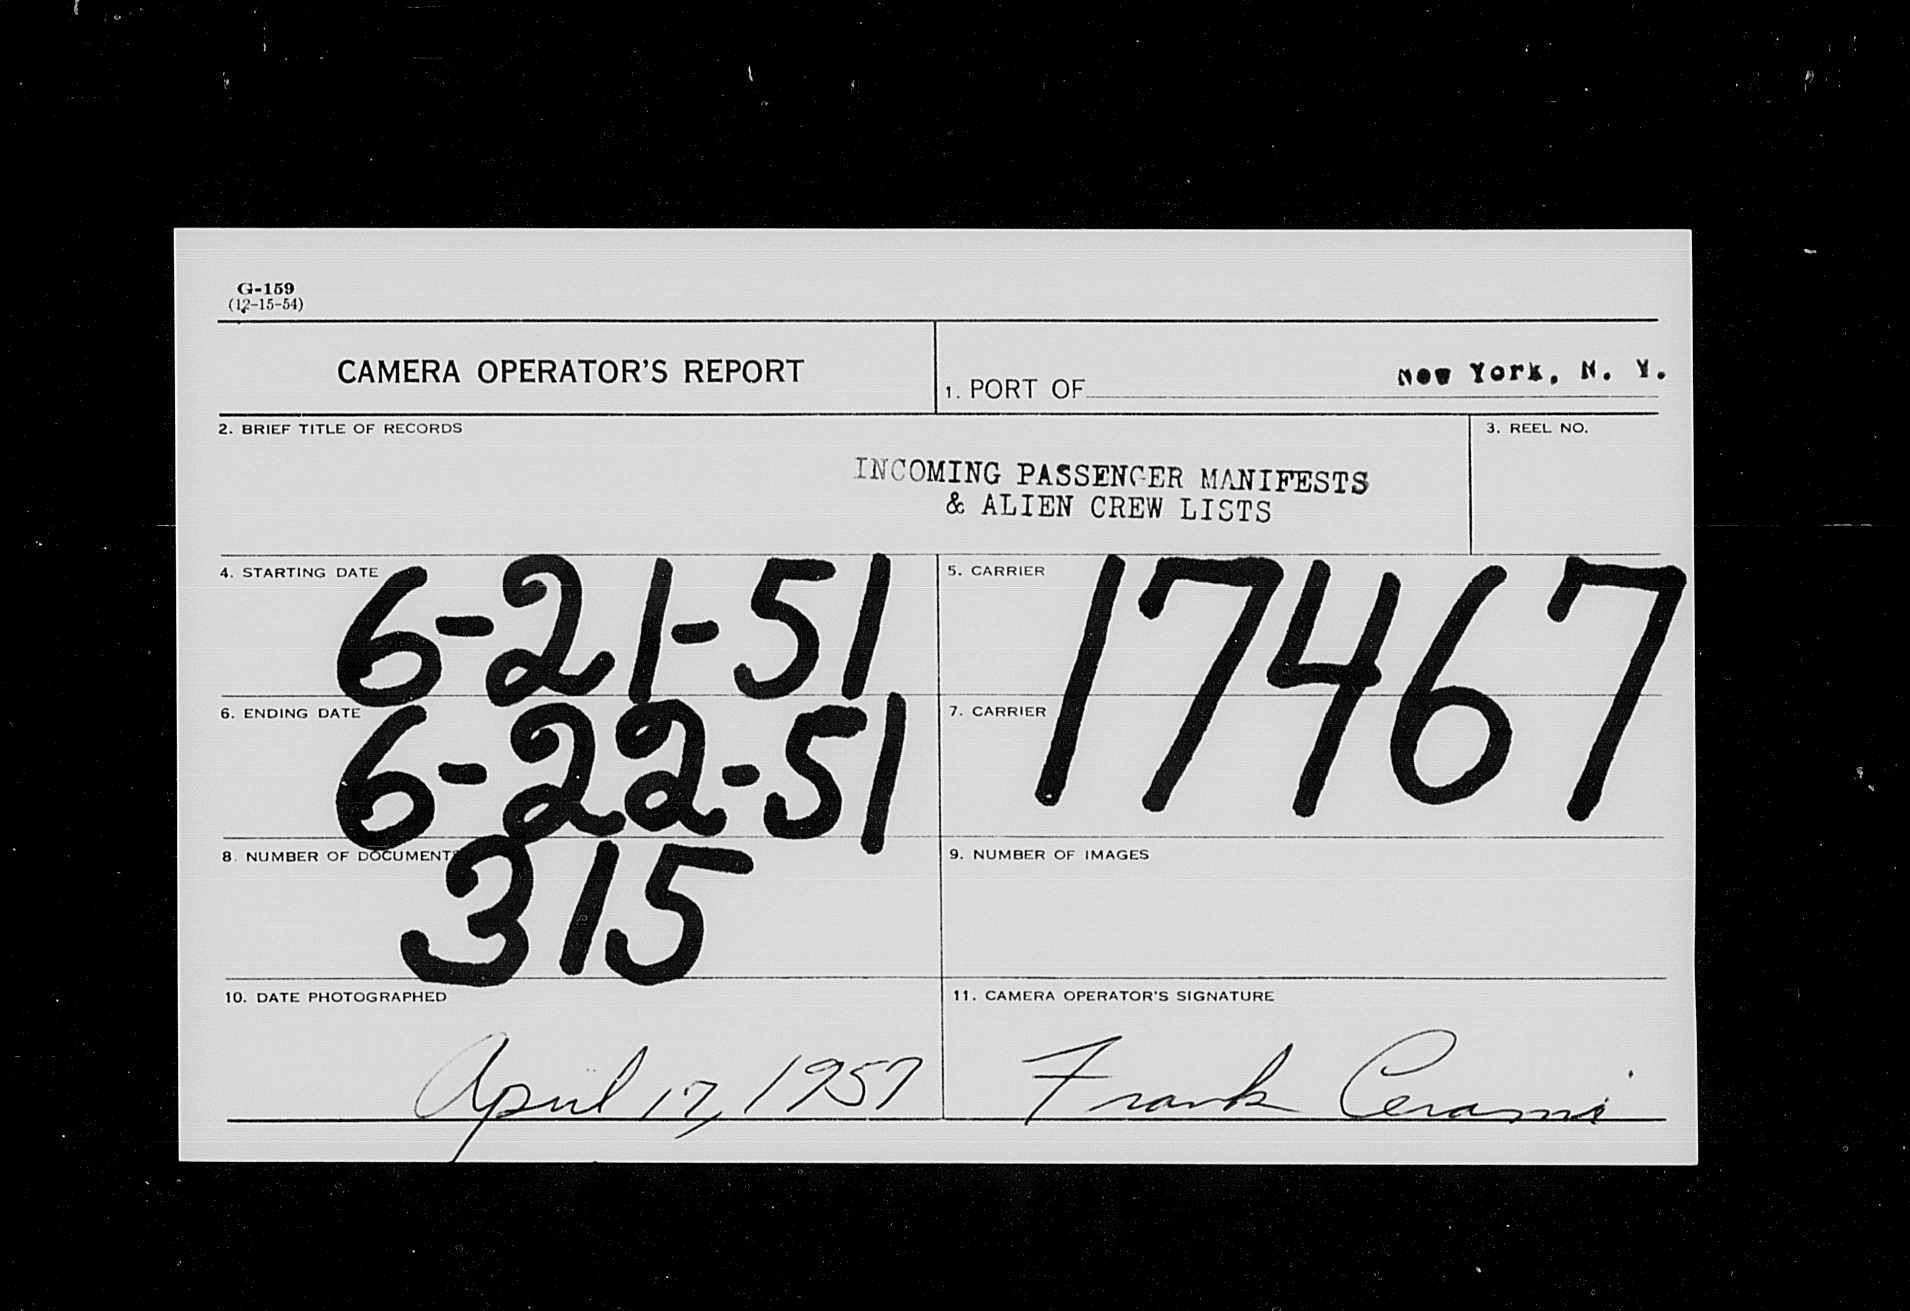 G-159
(12-15-54)
CAMERA OPERATOR'S REPORT
1. PORT OF New York, N. Y.
2. BRIEF TITLE OF RECORDS
INCOMING PASSENGER MANIFESTS
& ALIEN CREW LISTS
3. REEL NO.
4. STARTING DATE 6-21-51
5. CARRIER 17467
6. ENDING DATE 6-22-51
7. CARRIER
8. NUMBER OF DOCUMENTS 315
9. NUMBER OF IMAGES
10. DATE PHOTOGRAPHED
April 17, 1957
11. CAMERA OPERATOR'S SIGNATURE
Frank Cerami